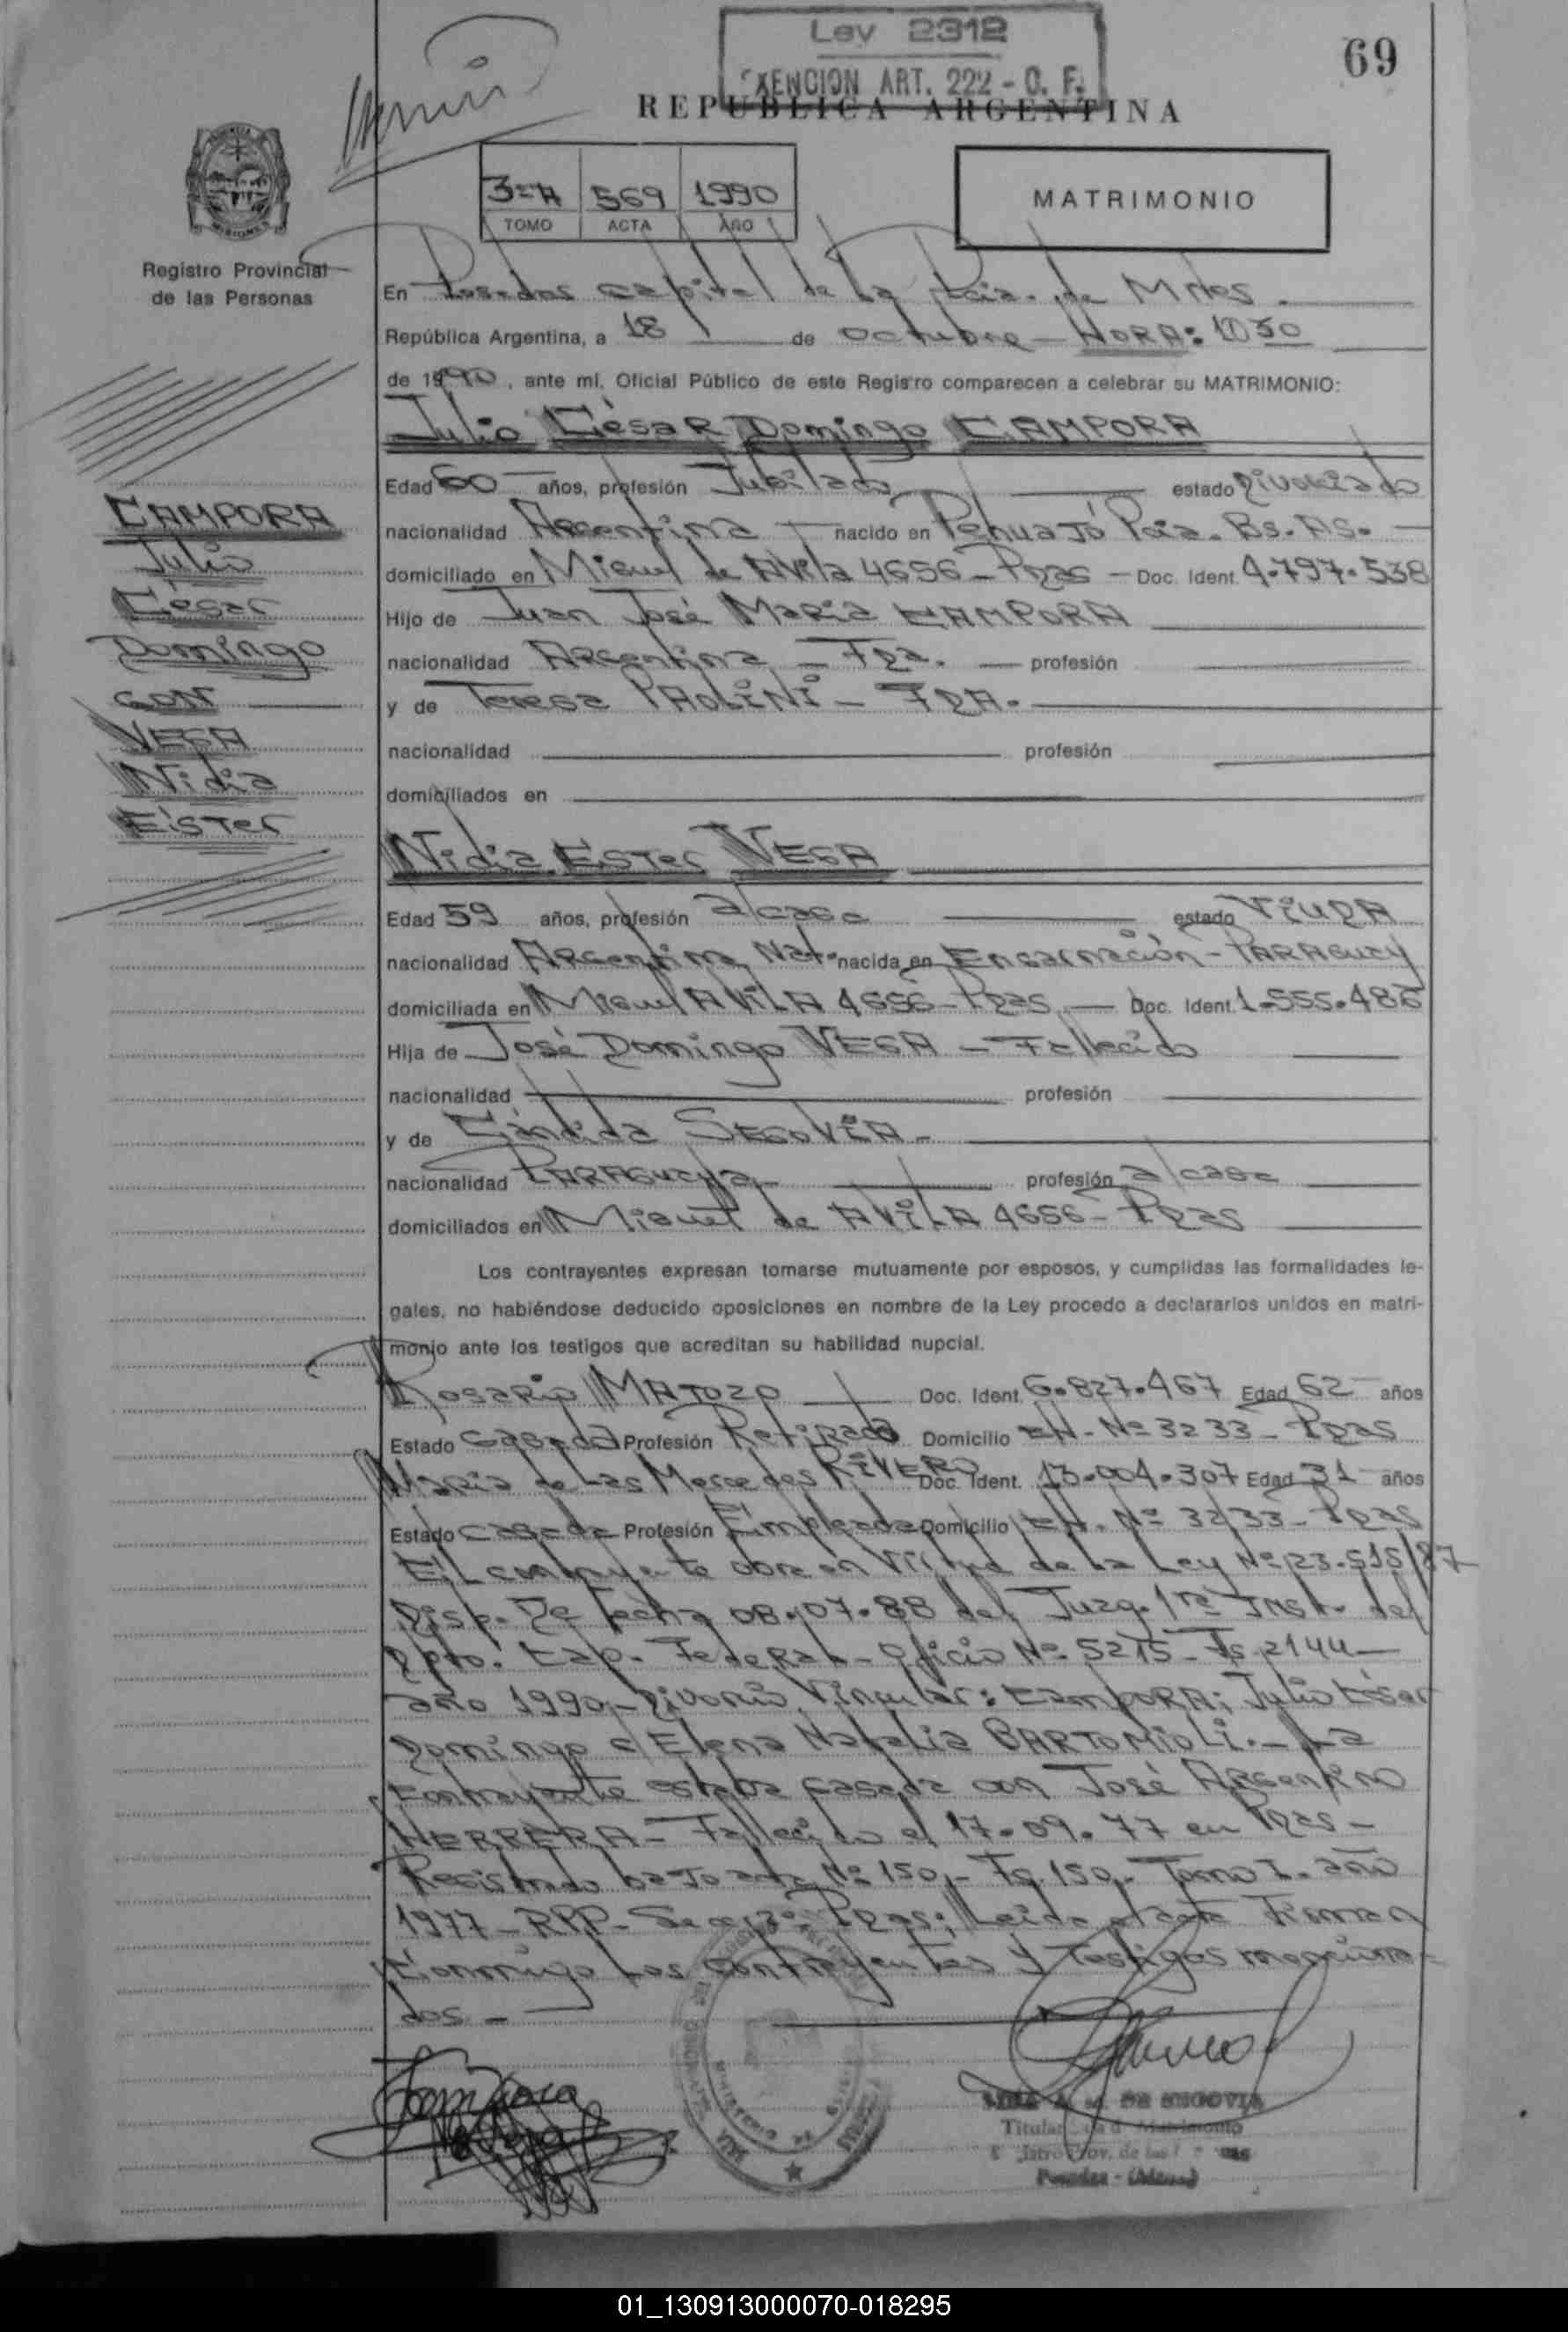 Ley 2312
EXENCION ART. 222 - C. F.
69
REPUBLICA ARGENTINA
3º A 569 1990
TOMO ACTA AÑO
MATRIMONIO
Registro Provincial
de las Personas
En Posadas capital de la Pcia. de Mnes.
República Argentina, a 18 de octubre - HORA: 1030
de 1990, ante mí, Oficial Público de este Registro comparecen a celebrar su MATRIMONIO:
Julio César Domingo CAMPORA
Edad 60 años, profesión Jubilado estado Divorciado
nacionalidad Argentina nacido en Pehuajó Pcia. Bs. As.
domiciliado en Miguel de Avila 4656 - Pdas - Doc. Ident. 4.797.538
Hijo de Juan José Maria CAMPORA
nacionalidad Argentina - Fda. - profesión
y de Teresa PAOLINI - FDA.
nacionalidad profesión
domiciliados en
CAMPORA
Julio
César
Domingo
con
VEGA
Nidia
Ester
Nidia Ester VEGA
Edad 59 años, profesión a/casa estado VIUDA
nacionalidad Argentina Nat. nacida en Encarnación - PARAGUAY
domiciliada en Miguel AVILA 4656 - Pdas - Doc. Ident. 1.555.486
Hija de José Domingo VEGA - Fallecido
nacionalidad profesión
y de Cándida SEGOVIA -
nacionalidad PARAGUAYA profesión a/casa
domiciliados en Miguel de AVILA 4656 - Pdas
Los contrayentes expresan tomarse mutuamente por esposos, y cumplidas las formalidades le-
gales, no habiéndose deducido oposiciones en nombre de la Ley procedo a declararlos unidos en matri-
monio ante los testigos que acreditan su habilidad nupcial.
Rosario MATOZO Doc. Ident. 6.827.467 Edad 62 años
Estado Casado Profesión Retirado Domicilio CH - Nº 3233 - Pdas
Maria de Las Mercedes RIVERO Doc. Ident. 13.004.307 Edad 31 años
Estado casada Profesión Empleada Domicilio CH. Nº 3233 - Pdas
El contrayente obra en virtud de la Ley Nº 23.515/87
Disp. De fecha 08.07.88 del Juzg. 1ra Inst. del
Dpto. Cap. Federal - Oficio Nº 5215 - Fs 2144 -
año 1990 - Divorcio Vincular: CAMPORA; Julio César
Domingo c/ Elena Natalia BARTOMIOLI. - La
Contrayente estaba casada con José Argentino
HERRERA - Fallecido el 17.09.77 en Pdas -
Registrado bajo acta Nº 150 - Fº 150 - Tomo I - año
1977 - RPP - Pdas; Leida el acta Firman
Conmigo Los contrayentes y Testigos menciona-
dos -
DE SEGOVIA
Titular Matrimonio
Prov. de las
Posadas - (Mnes)
01_130913000070-018295